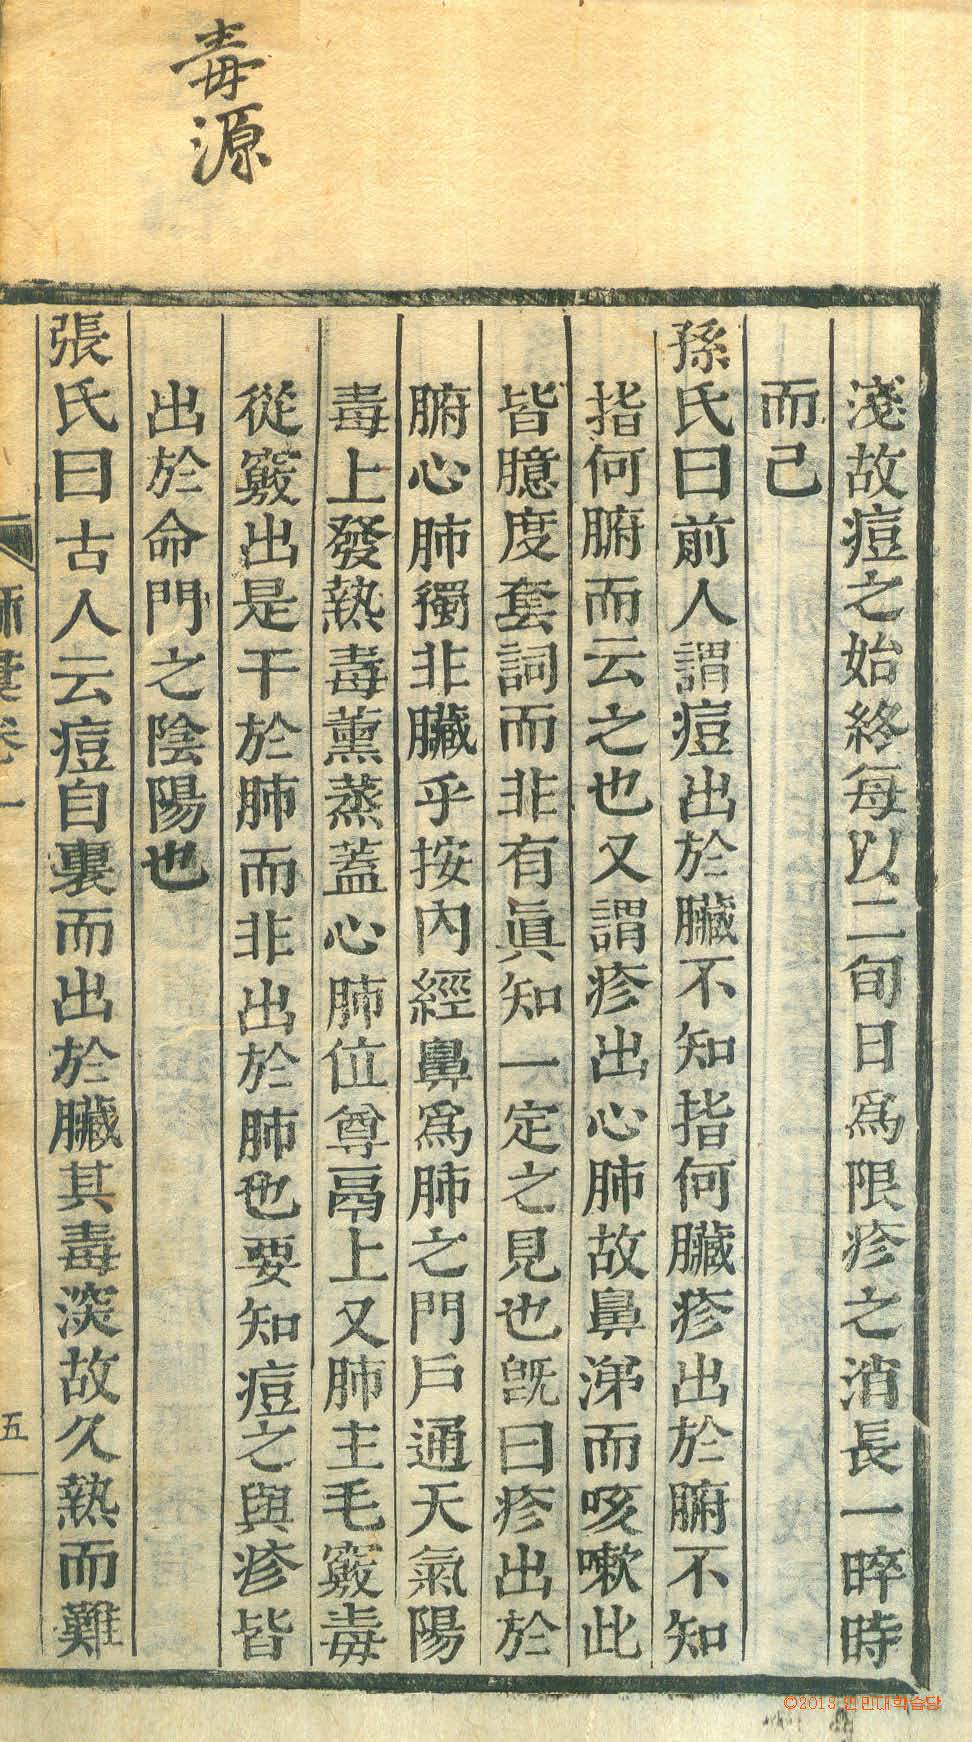 毒源
淺故痘之始終每以二旬日爲限疹之消長一晬時
而已
孫氏曰前人謂痘出於臟不知指何臟疹出於腑不知
指何腑而云之也又謂疹出心肺故鼻涕而咳嗽此
皆臆度套詞而非有眞知一定之見也旣曰疹出於
腑心肺獨非臟乎按內經鼻爲肺之門戶通天氣陽
毒上發熱毒薰蒸蓋心肺位尊鬲上又肺主毛竅毒
從竅出是干於肺而非出於肺也要知痘之與疹皆
出於命門之陰陽也
張氏曰古人云痘自裏而出於臟其毒深故久熱而難
卷一
五
©2013 인민대학습당